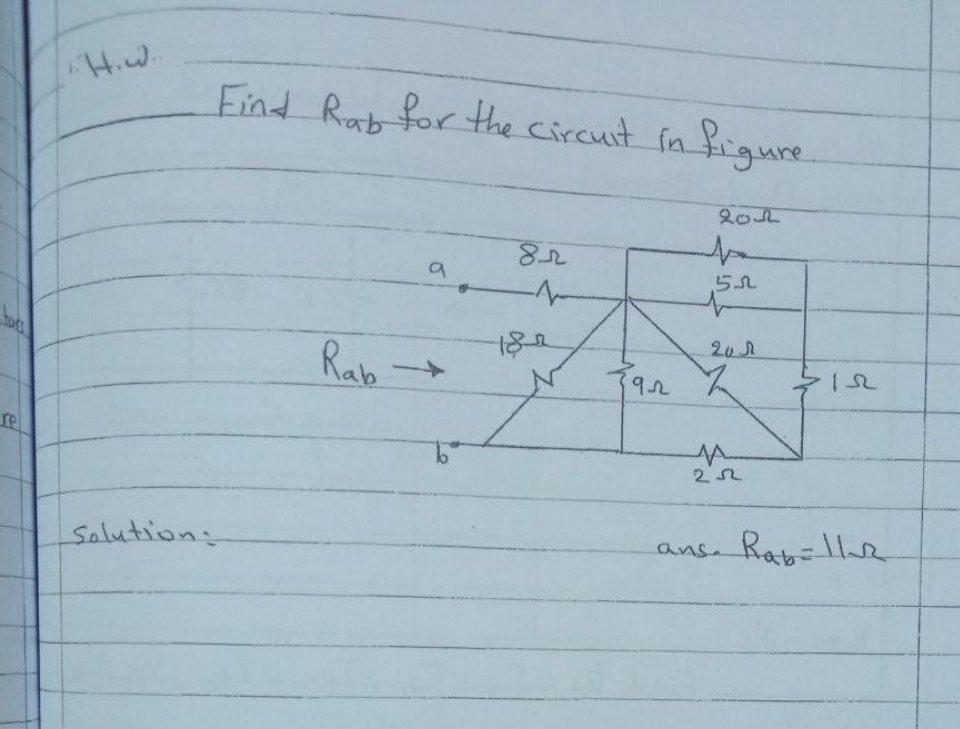 H.W
Find Rab for the circuit in figure
20Ω
8Ω
a
5Ω
18Ω
20Ω
Rab →
9Ω
1Ω
b
2Ω
Solution:
ans. Rab = 11Ω